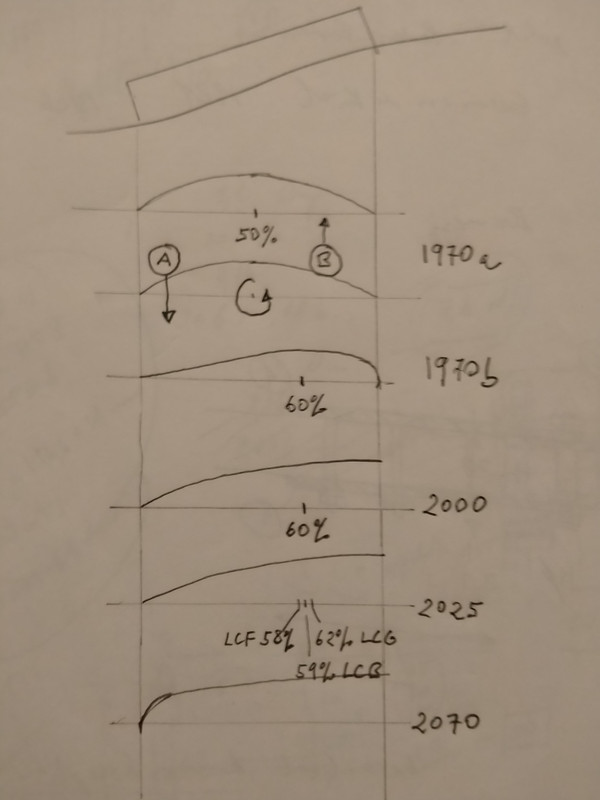 50%
A B
1970a
1970b
60%
2000
60%
2025
LCF 58% 62% LCG
59% LCB
2070